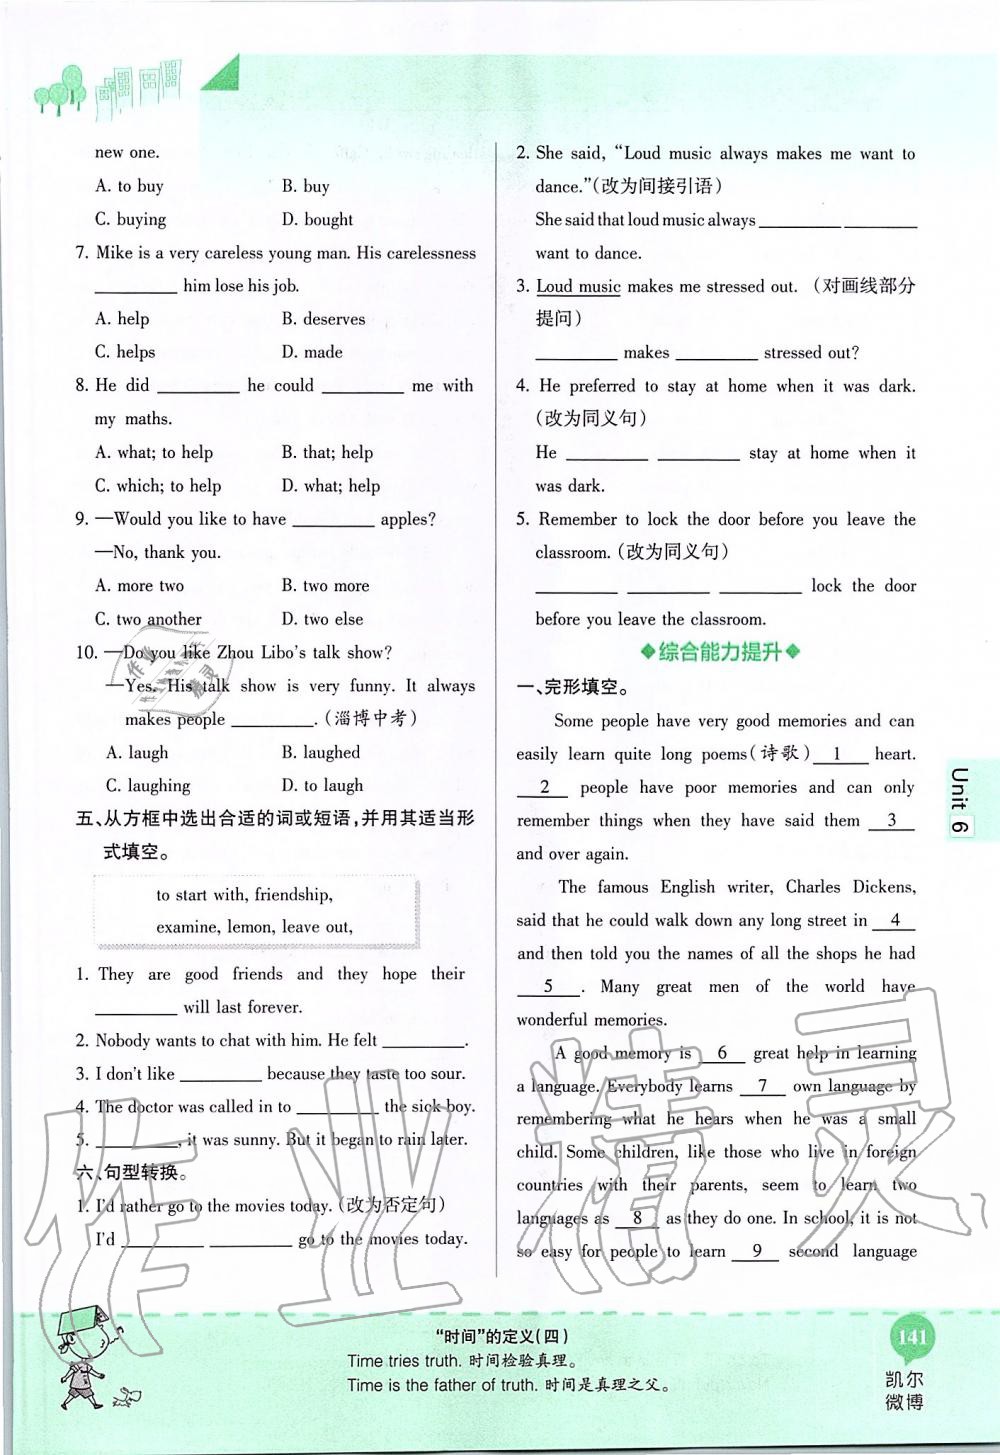 new one.
A. to buy B. buy
C. buying D. bought
7. Mike is a very careless young man. His carelessness
________ him lose his job.
A. help B. deserves
C. helps D. made
8. He did ________ he could ________ me with
my maths.
A. what; to help B. that; help
C. which; to help D. what; help
9. —Would you like to have ________ apples?
—No, thank you.
A. more two B. two more
C. two another D. two else
10. —Do you like Zhou Libo's talk show?
—Yes. His talk show is very funny. It always
makes people ________.(淄博中考)
A. laugh B. laughed
C. laughing D. to laugh
五、从方框中选出合适的词或短语,并用其适当形
式填空。
to start with, friendship,
examine, lemon, leave out,
1. They are good friends and they hope their
________ will last forever.
2. Nobody wants to chat with him. He felt ________.
3. I don't like ________ because they taste too sour.
4. The doctor was called in to ________ the sick boy.
5. ________, it was sunny. But it began to rain later.
六、句型转换。
1. I'd rather go to the movies today.(改为否定句)
I'd ________ ________ go to the movies today.
2. She said, “Loud music always makes me want to
dance.”(改为间接引语)
She said that loud music always ________ ________
want to dance.
3. Loud music makes me stressed out. (对画线部分
提问)
________ makes ________ stressed out?
4. He preferred to stay at home when it was dark.
(改为同义句)
He ________ ________ stay at home when it
was dark.
5. Remember to lock the door before you leave the
classroom.(改为同义句)
________ ________ ________ lock the door
before you leave the classroom.
综合能力提升
一、完形填空。
Some people have very good memories and can
easily learn quite long poems(诗歌) 1 heart.
2 people have poor memories and can only
remember things when they have said them 3
and over again.
The famous English writer, Charles Dickens,
said that he could walk down any long street in 4
and then told you the names of all the shops he had
5 . Many great men of the world have
wonderful memories.
A good memory is 6 great help in learning
a language. Everybody learns 7 own language by
remembering what he hears when he was a small
child. Some children, like those who live in foreign
countries with their parents, seem to learn two
languages as 8 as they do one. In school, it is not
so easy for people to learn 9 second language
Unit 6
“时间”的定义(四)
Time tries truth. 时间检验真理。
Time is the father of truth. 时间是真理之父。
141
凯尔
微博
作业精灵
作业
精灵